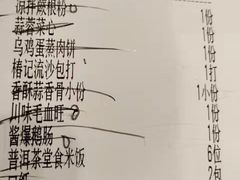 凉拌蕨根粉 1份
蒜蓉菜心 1份
乌鸡蛋蒸肉饼 1份
椿记流沙包打 1打
香酥蒜香骨小份 1小份
川味毛血旺 1份
酱爆鹅肠 1份
普洱茶堂食米饭 6位
2包